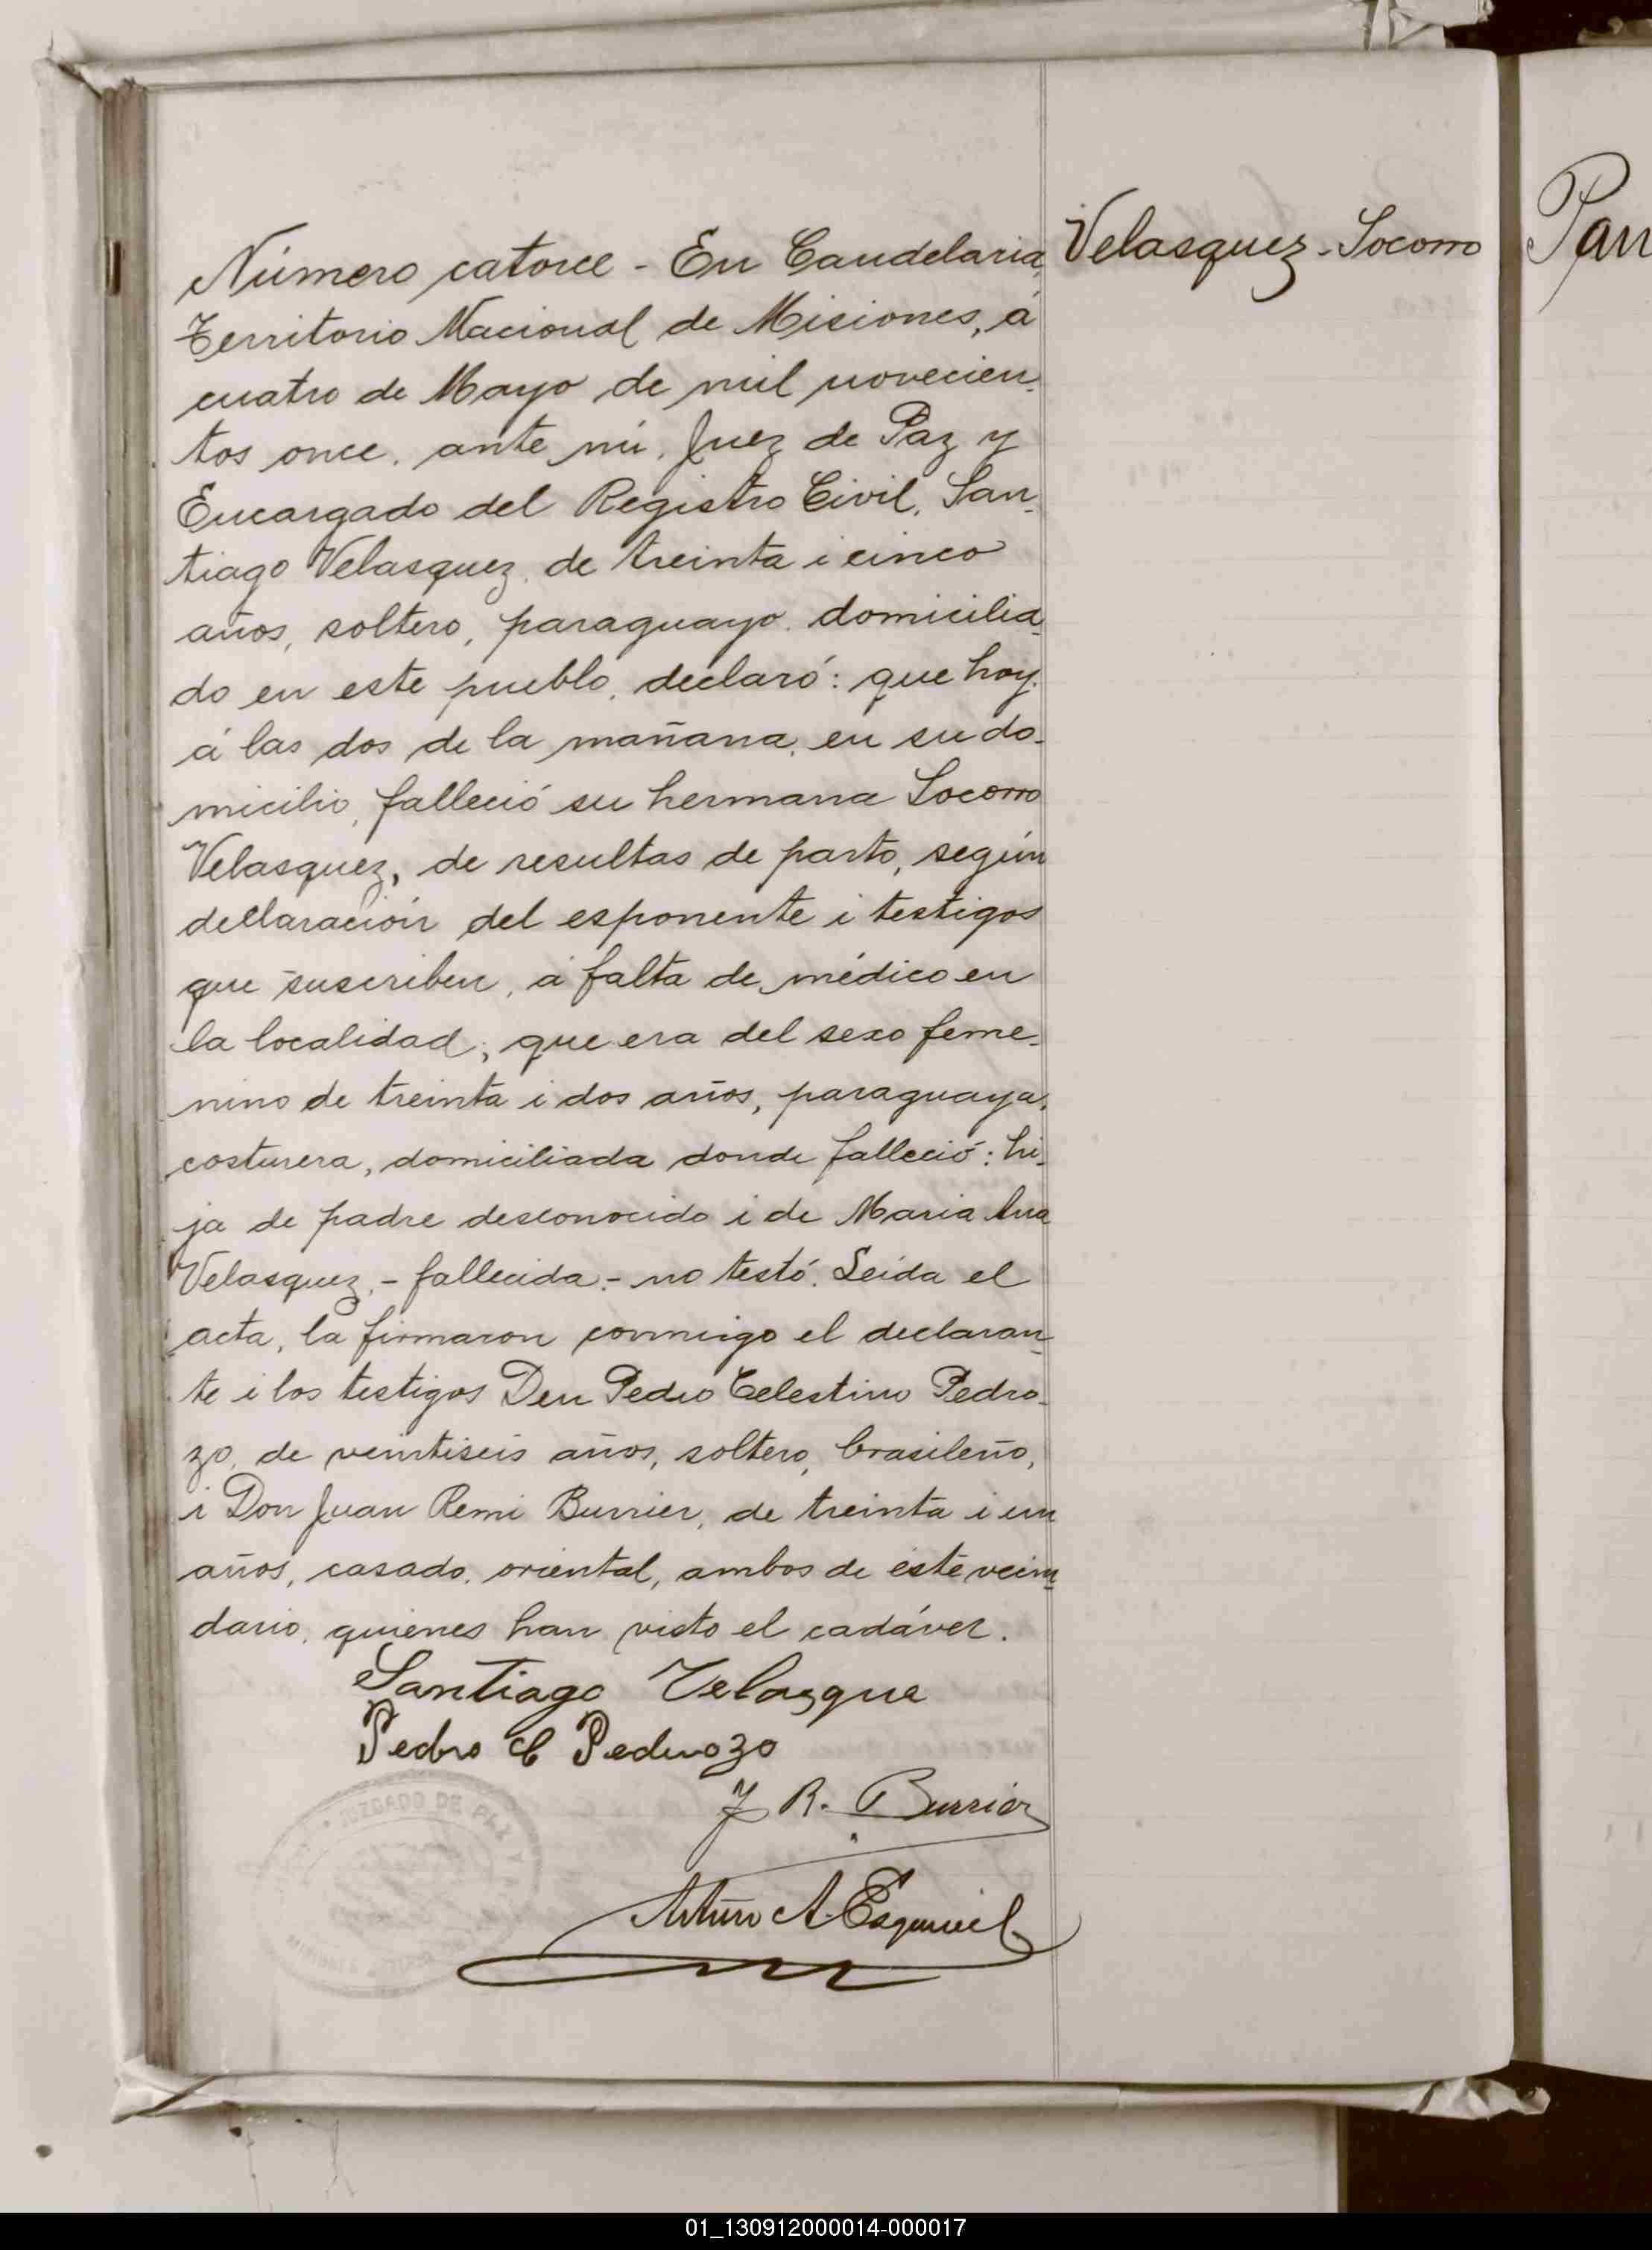 Número catorce - En Candelaria,
Velasquez - Socorro
Territorio Nacional de Misiones, á
cuatro de Mayo de mil novecien-
tos once, ante mi, Juez de Paz y
Encargado del Registro Civil, San-
tiago Velasquez, de treinta i cinco
años, soltero, paraguayo, domicilia-
do en este pueblo, declaró: que hoy,
á las dos de la mañana, en su do-
micilio, falleció su hermana Socorro
Velasquez, de resultas de parto, según
declaración del esponente i testigos
que suscriben, á falta de médico en
la localidad; que era del sexo feme-
nino de treinta i dos años, paraguaya,
costurera, domiciliada donde falleció: hi-
ja de padre desconocido i de Maria Ana
Velasquez, - fallecida - no testó. Leída el
acta, la firmaron conmigo el declaran-
te i los testigos Don Pedro Celestino Pedro-
zo, de veintiseis años, soltero, brasileño,
i Don Juan Remi Burrier, de treinta i un
años, casado, oriental, ambos de este vecin-
dario, quienes han visto el cadáver.
Santiago Velasque
Pedro C Pedrozo
J R. Burrier
Arturo A. Esquivel
JUZGADO DE PAZ Y
Pan
01_130912000014-000017